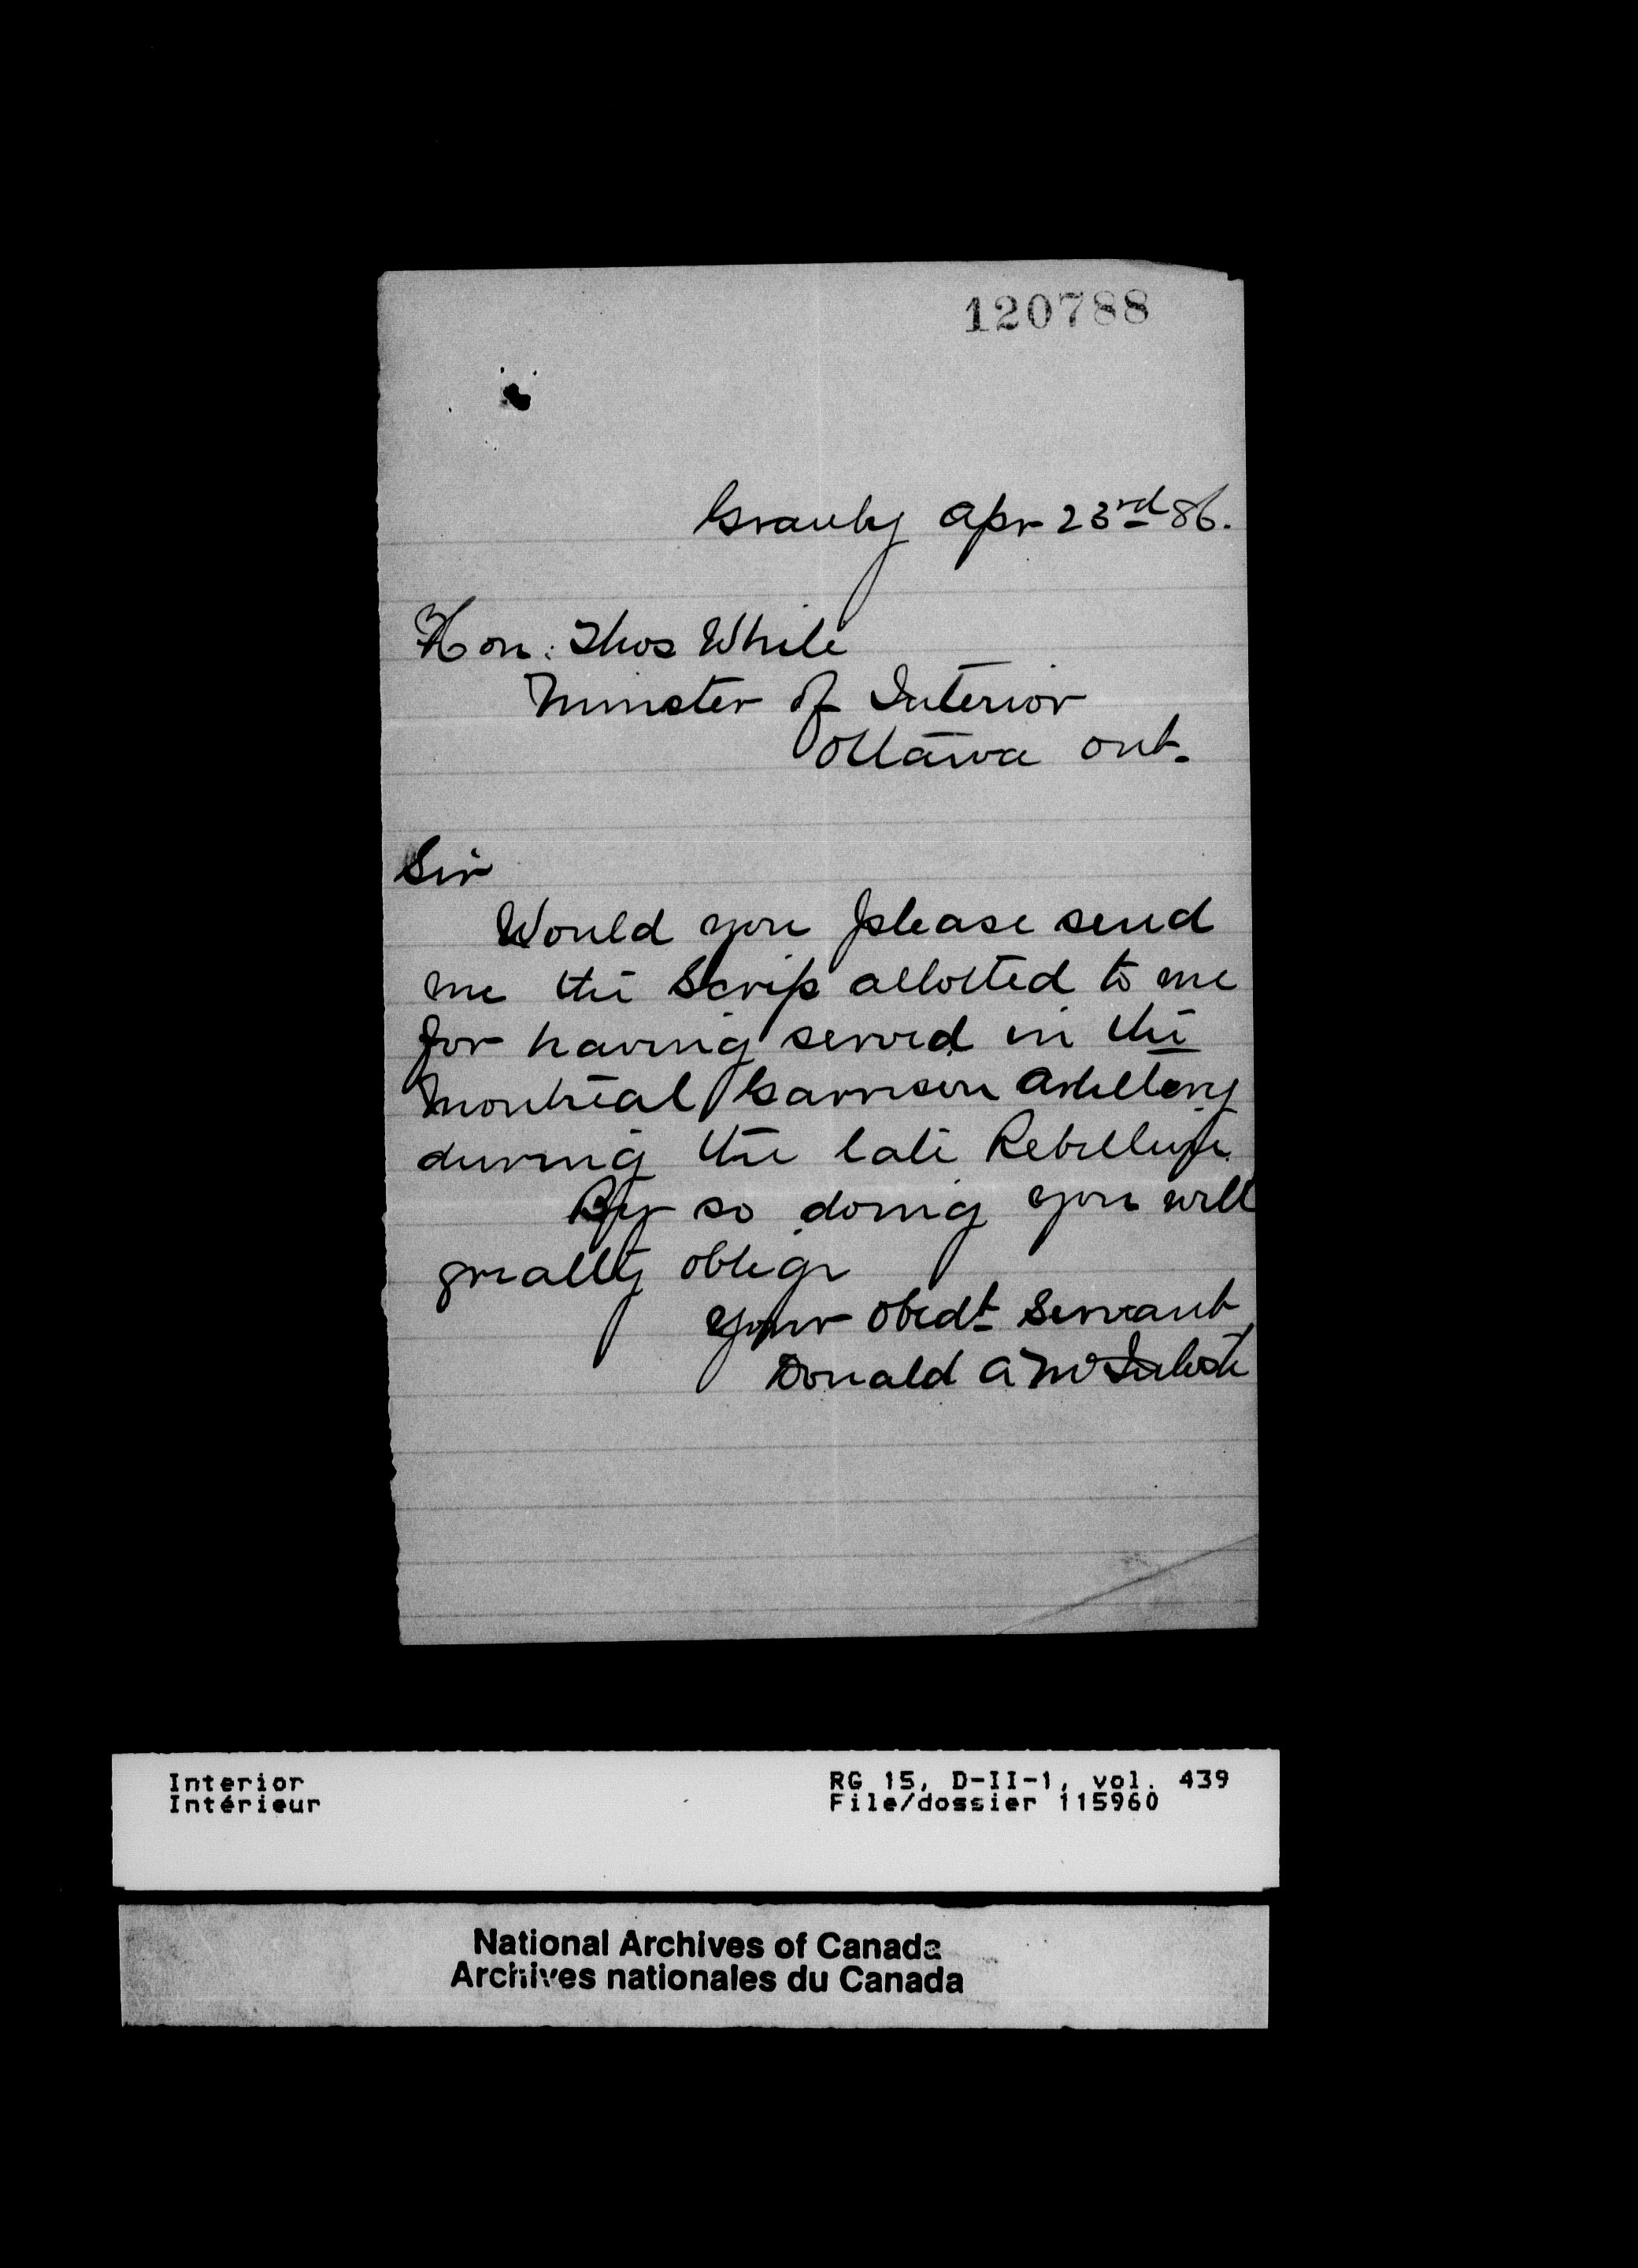 120788
Granby Apr 23rd 86.
Hon. Thos White
Minister of Interior
Ottawa Ont.
Sir
Would you please send
me the Scrip allotted to me
for having served in the
Montreal Garrison Artillery
during the late Rebellion.
By so doing you will
greatly oblige
Your Obedt Servant
Donald A McIntosh
Interior
Intérieur
RG 15, D-II-1, vol. 439
File/dossier 115960
National Archives of Canada
Archives nationales du Canada